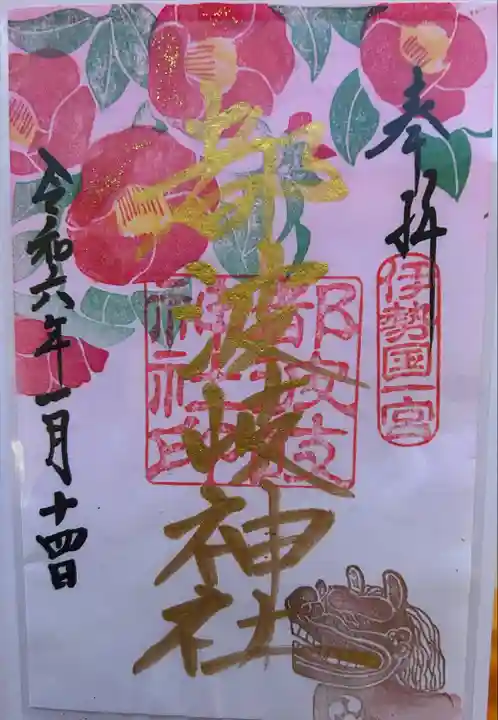 奉拝
伊勢国一宮
都波岐神社
令和六年一月十四日